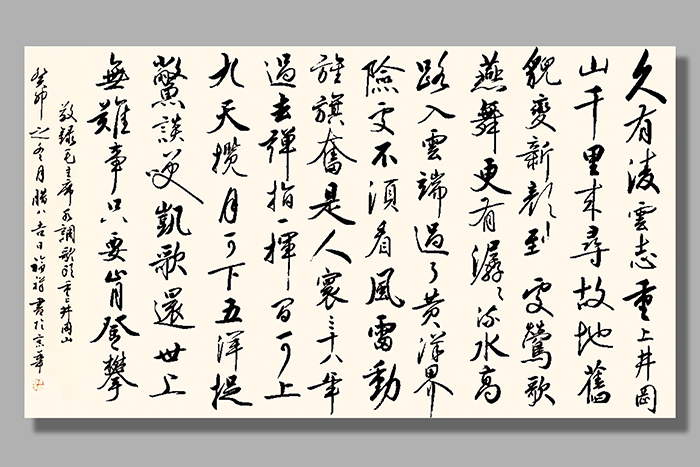 久有凌雲志重上井岡
山千里來尋故地舊
貌變新顏到處鶯歌
燕舞更有潺々流水高
路入雲端過了黄洋界
險處不須看風雷動
旌旗奮是人寰三十八年
過去彈指一揮間可上
九天攬月可下五洋捉
鱉談笑凱歌還世上
無難事只要肯登攀
敬録毛主席水調歌頭重上井岡山
癸卯之冬月臘八吉日福祥書於京華